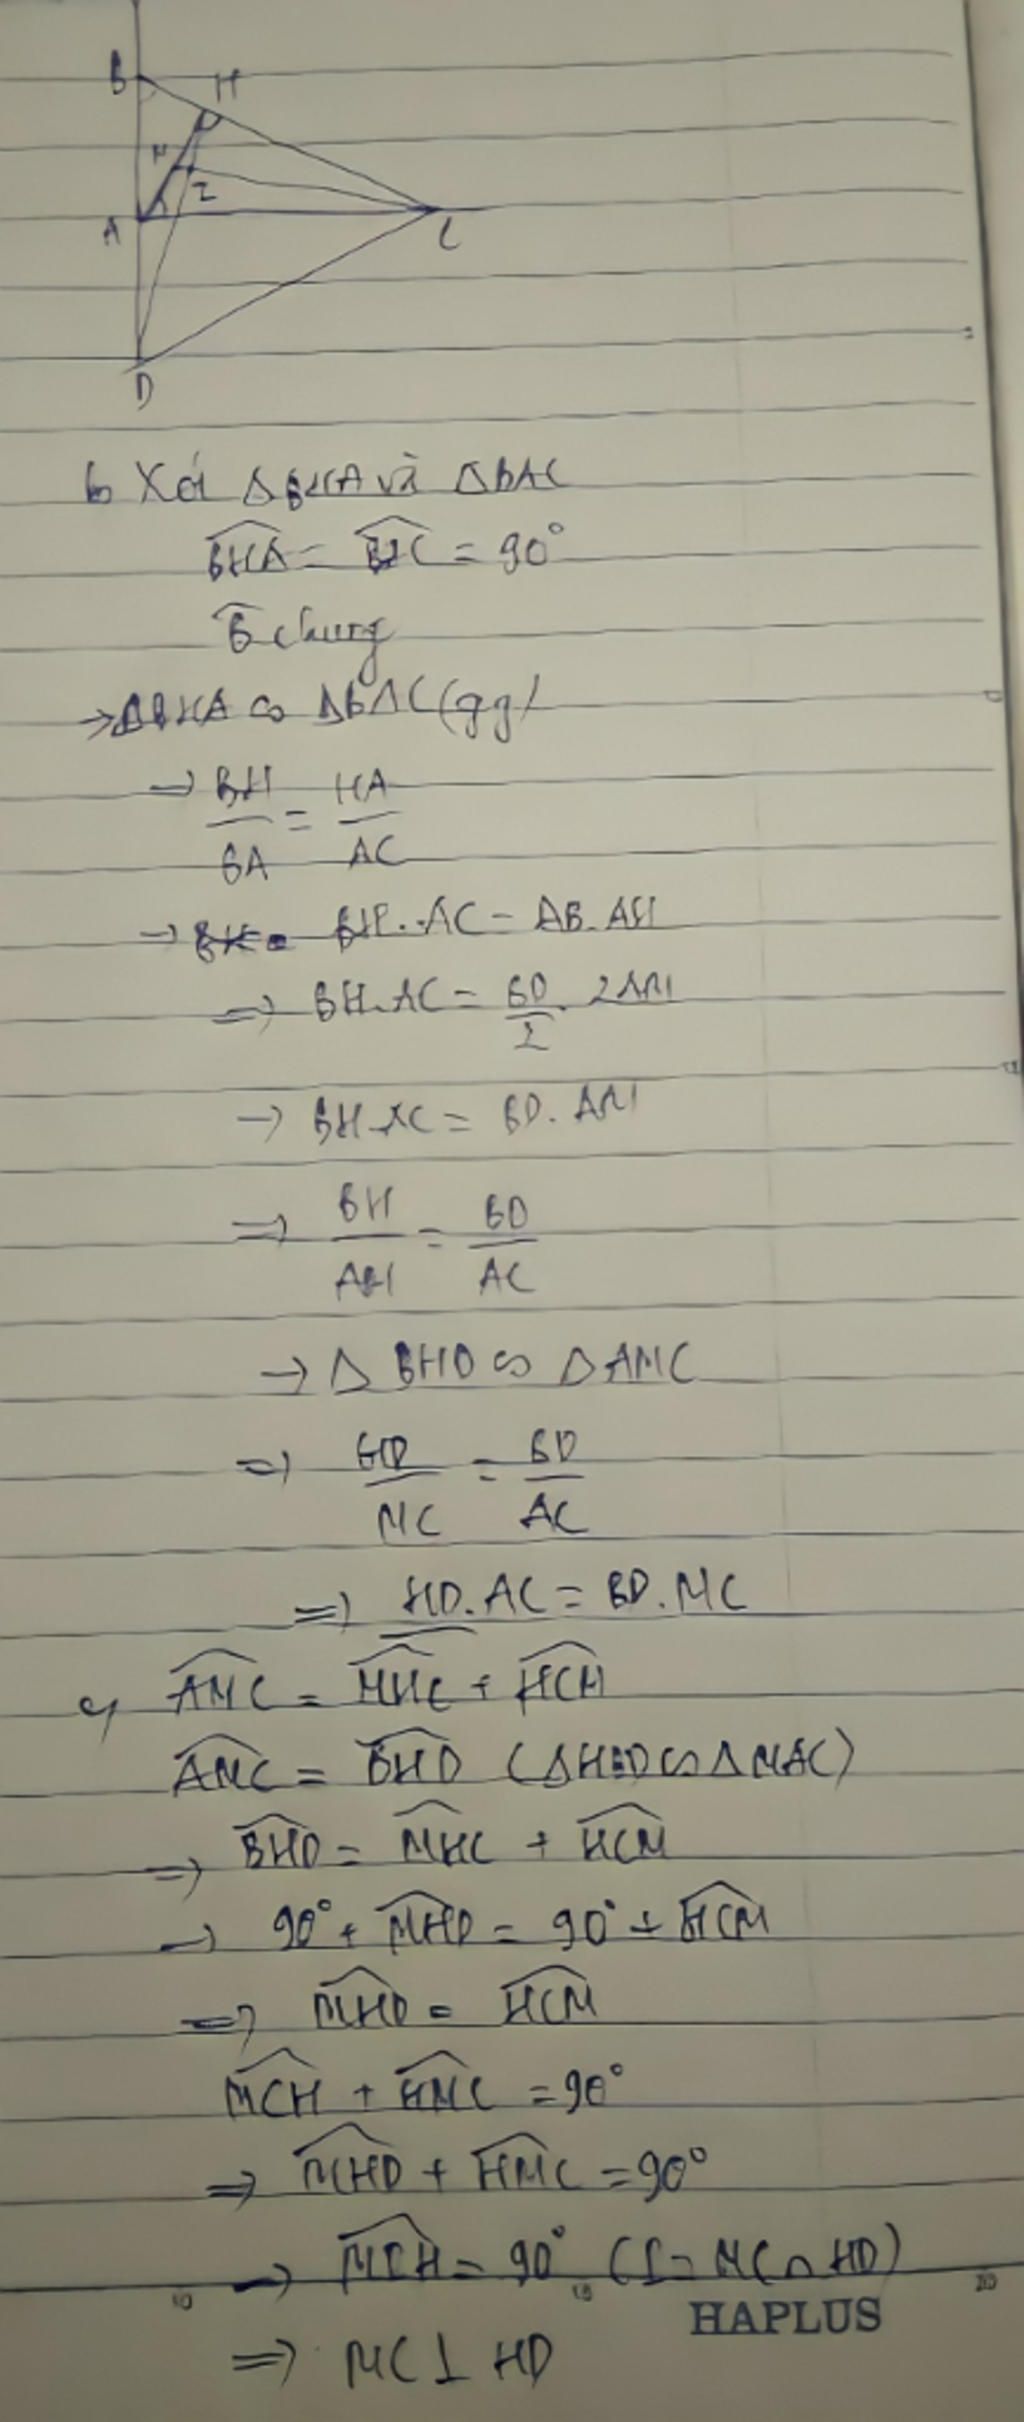 B H
M
I
A C
D
b, Xét ΔBHA và ΔBAC
BHA = BAC = 90°
B chung
→ ΔBHA ∽ ΔBAC (gg)
→ BH/BA = HA/AC
→ BH.AC = AB.AH
=> BH.AC = BD/2 . 2AM
→ BH.AC = BD.AM
=> BH/AM = BD/AC
→ Δ BHD ∽ Δ AMC
=> HD/MC = BD/AC
=> HD.AC = BD.MC
c, AMC = MHC + HCM
AMC = BHD (ΔHBD ∽ ΔMAC)
=> BHD = MHC + HCM
→ 90° + MHD = 90° + HCM
=> MHD = HCM
MCH + HMC = 90°
=> MHD + HMC = 90°
→ MIH = 90° (I = MC ∩ HD)
10 15 20
HAPLUS
=> MC ⊥ HD